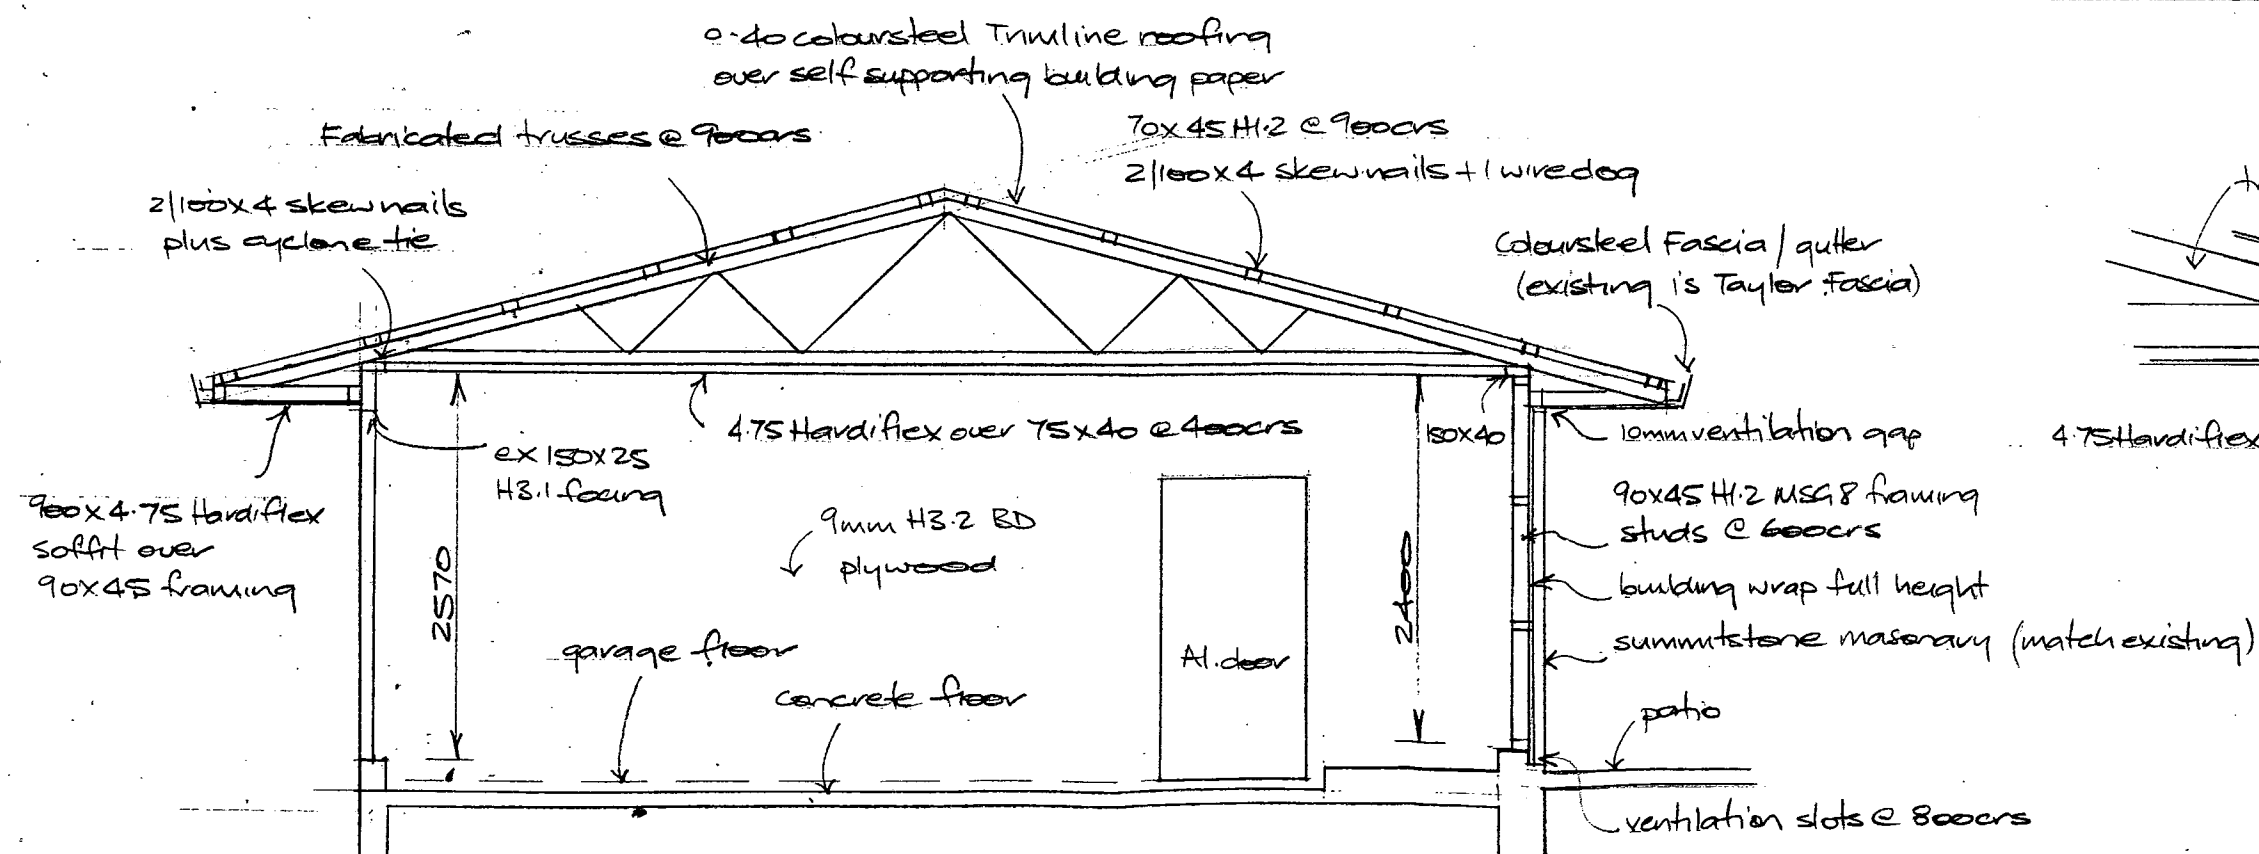 0.40 coloursteel Trimline roofing
over self supporting building paper
Fabricated trusses @ 900crs
70x45 H1.2 @ 900crs
2/100x4 skewnails + 1 wiredog
2/100x4 skewnails
plus cyclone tie
Coloursteel Fascia / gutter
(existing is Taylor Fascia)
4.75 Hardiflex over 75x40 @ 400crs
150x40
10mm ventilation gap
4.75 Hardiflex
ex 150x25
H3.1 facing
900x4.75 Hardiflex
soffit over
90x45 framing
9mm H3.2 BD
plywood
90x45 H1.2 MSG8 framing
studs @ 600crs
2570
2400
building wrap full height
summitstone masonary (match existing)
garage floor
Al. door
concrete floor
patio
ventilation slots @ 800crs